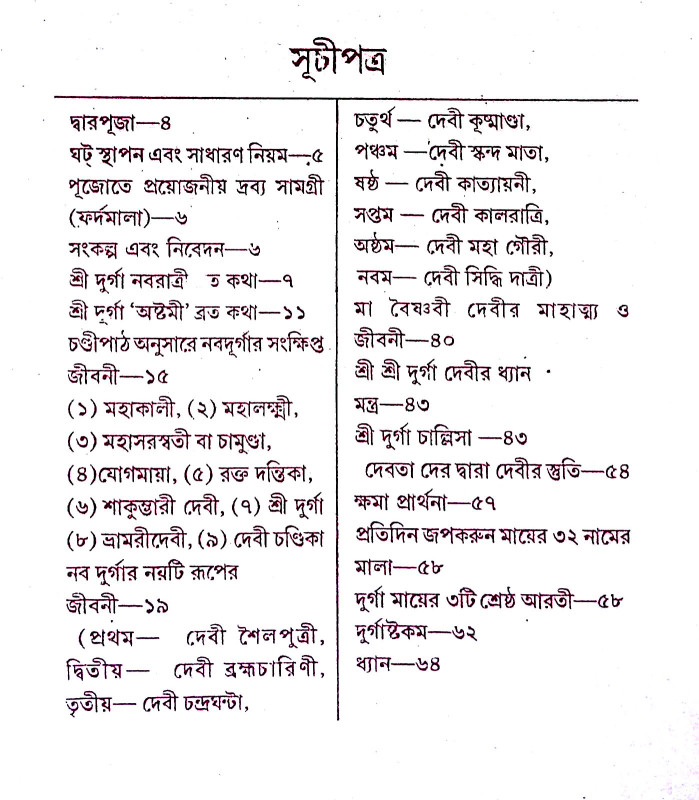 সূচীপত্র
দ্বারপূজা—৪
ঘট্ স্থাপন এবং সাধারণ নিয়ম—৫
পূজোতে প্রয়োজনীয় দ্রব্য সামগ্রী
(ফর্দমালা)—৬
সংকল্প এবং নিবেদন—৬
শ্রী দুর্গা নবরাত্রী ত কথা—৭
শ্রী দুর্গা ‘অষ্টমী’ ব্রত কথা—১১
চণ্ডীপাঠ অনুসারে নবদূর্গার সংক্ষিপ্ত
জীবনী—১৫
(১) মহাকালী, (২) মহালক্ষ্মী,
(৩) মহাসরস্বতী বা চামুণ্ডা,
(৪)যোগমায়া, (৫) রক্ত দন্তিকা,
(৬) শাকুম্ভারী দেবী, (৭) শ্রী দুর্গা
(৮) ভ্রামরীদেবী, (৯) দেবী চণ্ডিকা
নব দুর্গার নয়টি রূপের
জীবনী—১৯
(প্রথম— দেবী শৈলপুত্রী,
দ্বিতীয়— দেবী ব্রহ্মচারিণী,
তৃতীয়— দেবী চন্দ্রঘন্টা,
চতুর্থ — দেবী কৃষ্মাণ্ডা,
পঞ্চম —দেবী স্কন্দ মাতা,
ষষ্ঠ — দেবী কাত্যায়নী,
সপ্তম — দেবী কালরাত্রি,
অষ্ঠম— দেবী মহা গৌরী,
নবম— দেবী সিদ্ধি দাত্রী)
মা বৈষ্ণবী দেবীর মাহাত্ম্য ও
জীবনী—৪০
শ্রী শ্রী দুর্গা দেবীর ধ্যান
মন্ত্র—৪৩
শ্রী দুর্গা চাল্লিসা —৪৩
দেবতা দের দ্বারা দেবীর স্তুতি—৫৪
ক্ষমা প্রার্থনা—৫৭
প্রতিদিন জপকরুন মায়ের ৩২ নামের
মালা—৫৮
দুর্গা মায়ের ৩টি শ্রেষ্ঠ আরতী—৫৮
দুর্গাষ্টকম—৬২
ধ্যান—৬৪